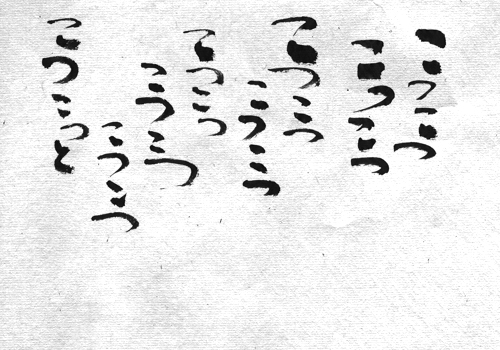 こつこつ
こつこつ
こつこつ
こつこつ
こつこつ
こつこつ
こつこつ
こつこつと